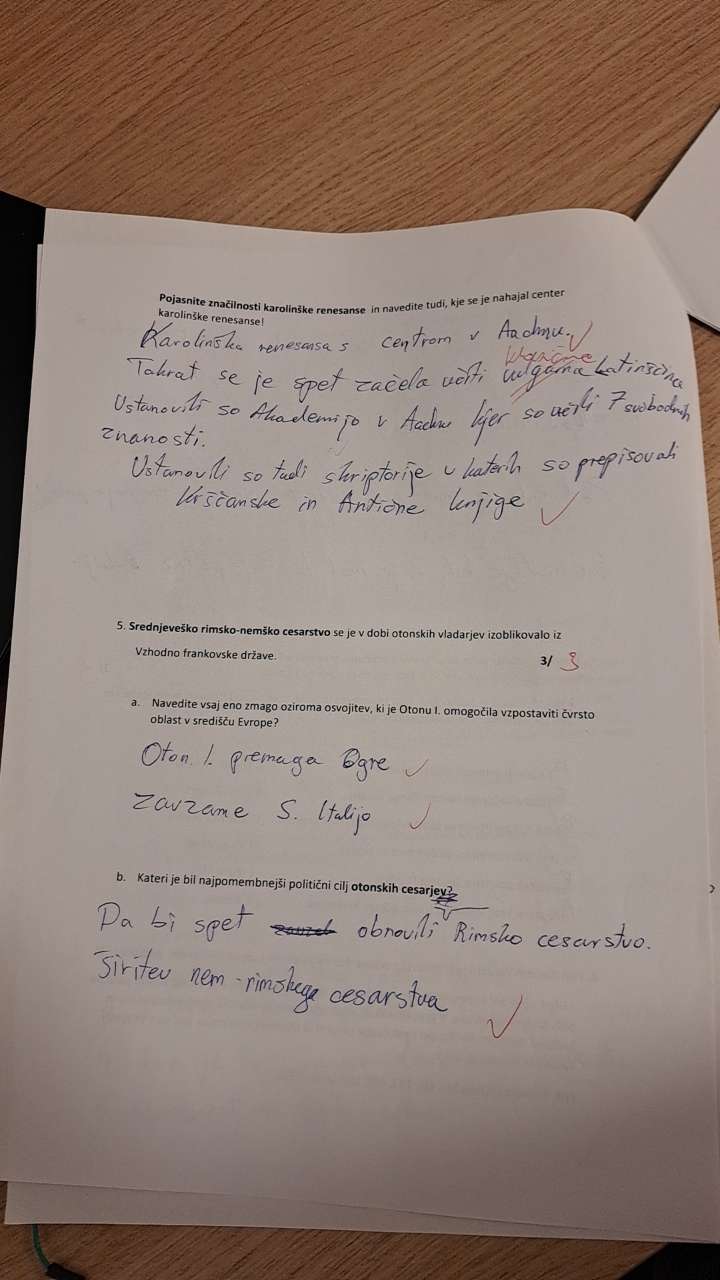 Pojasnite značilnosti karolinške renesanse in navedite tudi, kje se je nahajal center
karolinške renesanse!
Karolinška renesansa s centrom v Aachnu.
klasične
Takrat se je spet začela učiti vulgarna Latinščina
Ustanovili so Akademijo v Aachnu kjer so učili 7 svobodnih
znanosti.
Ustanovili so tudi skriptorije v katerih so prepisovali
Krščanske in Antične knjige
5. Srednjeveško rimsko-nemško cesarstvo se je v dobi otonskih vladarjev izoblikovalo iz
Vzhodno frankovske države.
3/ 3
a. Navedite vsaj eno zmago oziroma osvojitev, ki je Otonu I. omogočila vzpostaviti čvrsto
oblast v središču Evrope?
Oton I. premaga Ogre
zavzame S. Italijo
b. Kateri je bil najpomembnejši politični cilj otonskih cesarjev?
Da bi spet obnovili Rimsko cesarstvo.
Širitev nem-rimskega cesarstva